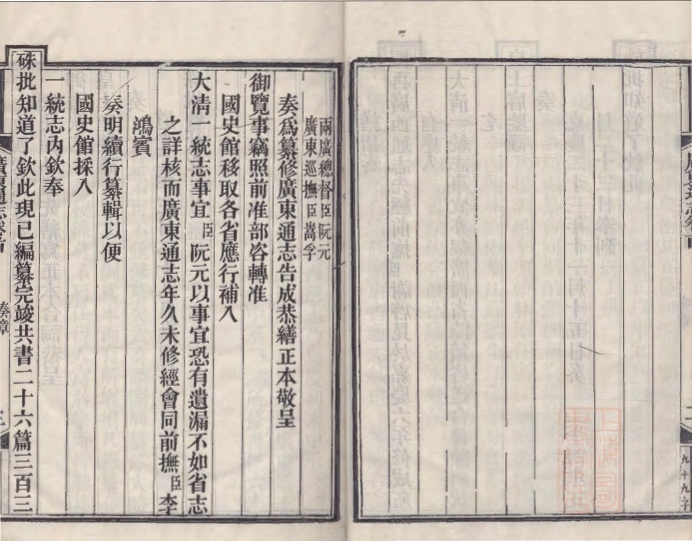 九十九字
兩廣總督臣阮元
廣東巡撫臣嵩孚
奏爲纂修廣東通志告成恭繕正本敬呈
御覽事竊照前准部咨轉准
國史館移取各省應行補入
大清一統志事宜臣阮元以事宜恐有遺漏不如省志
之詳核而廣東通志年久未修經會同前撫臣李
鴻賓
奏明續行纂輯以便
國史館採入
一統志內欽奉
硃批知道了欽此現已編纂完竣共書二十六篇三百三
廣東通志卷首
奏章